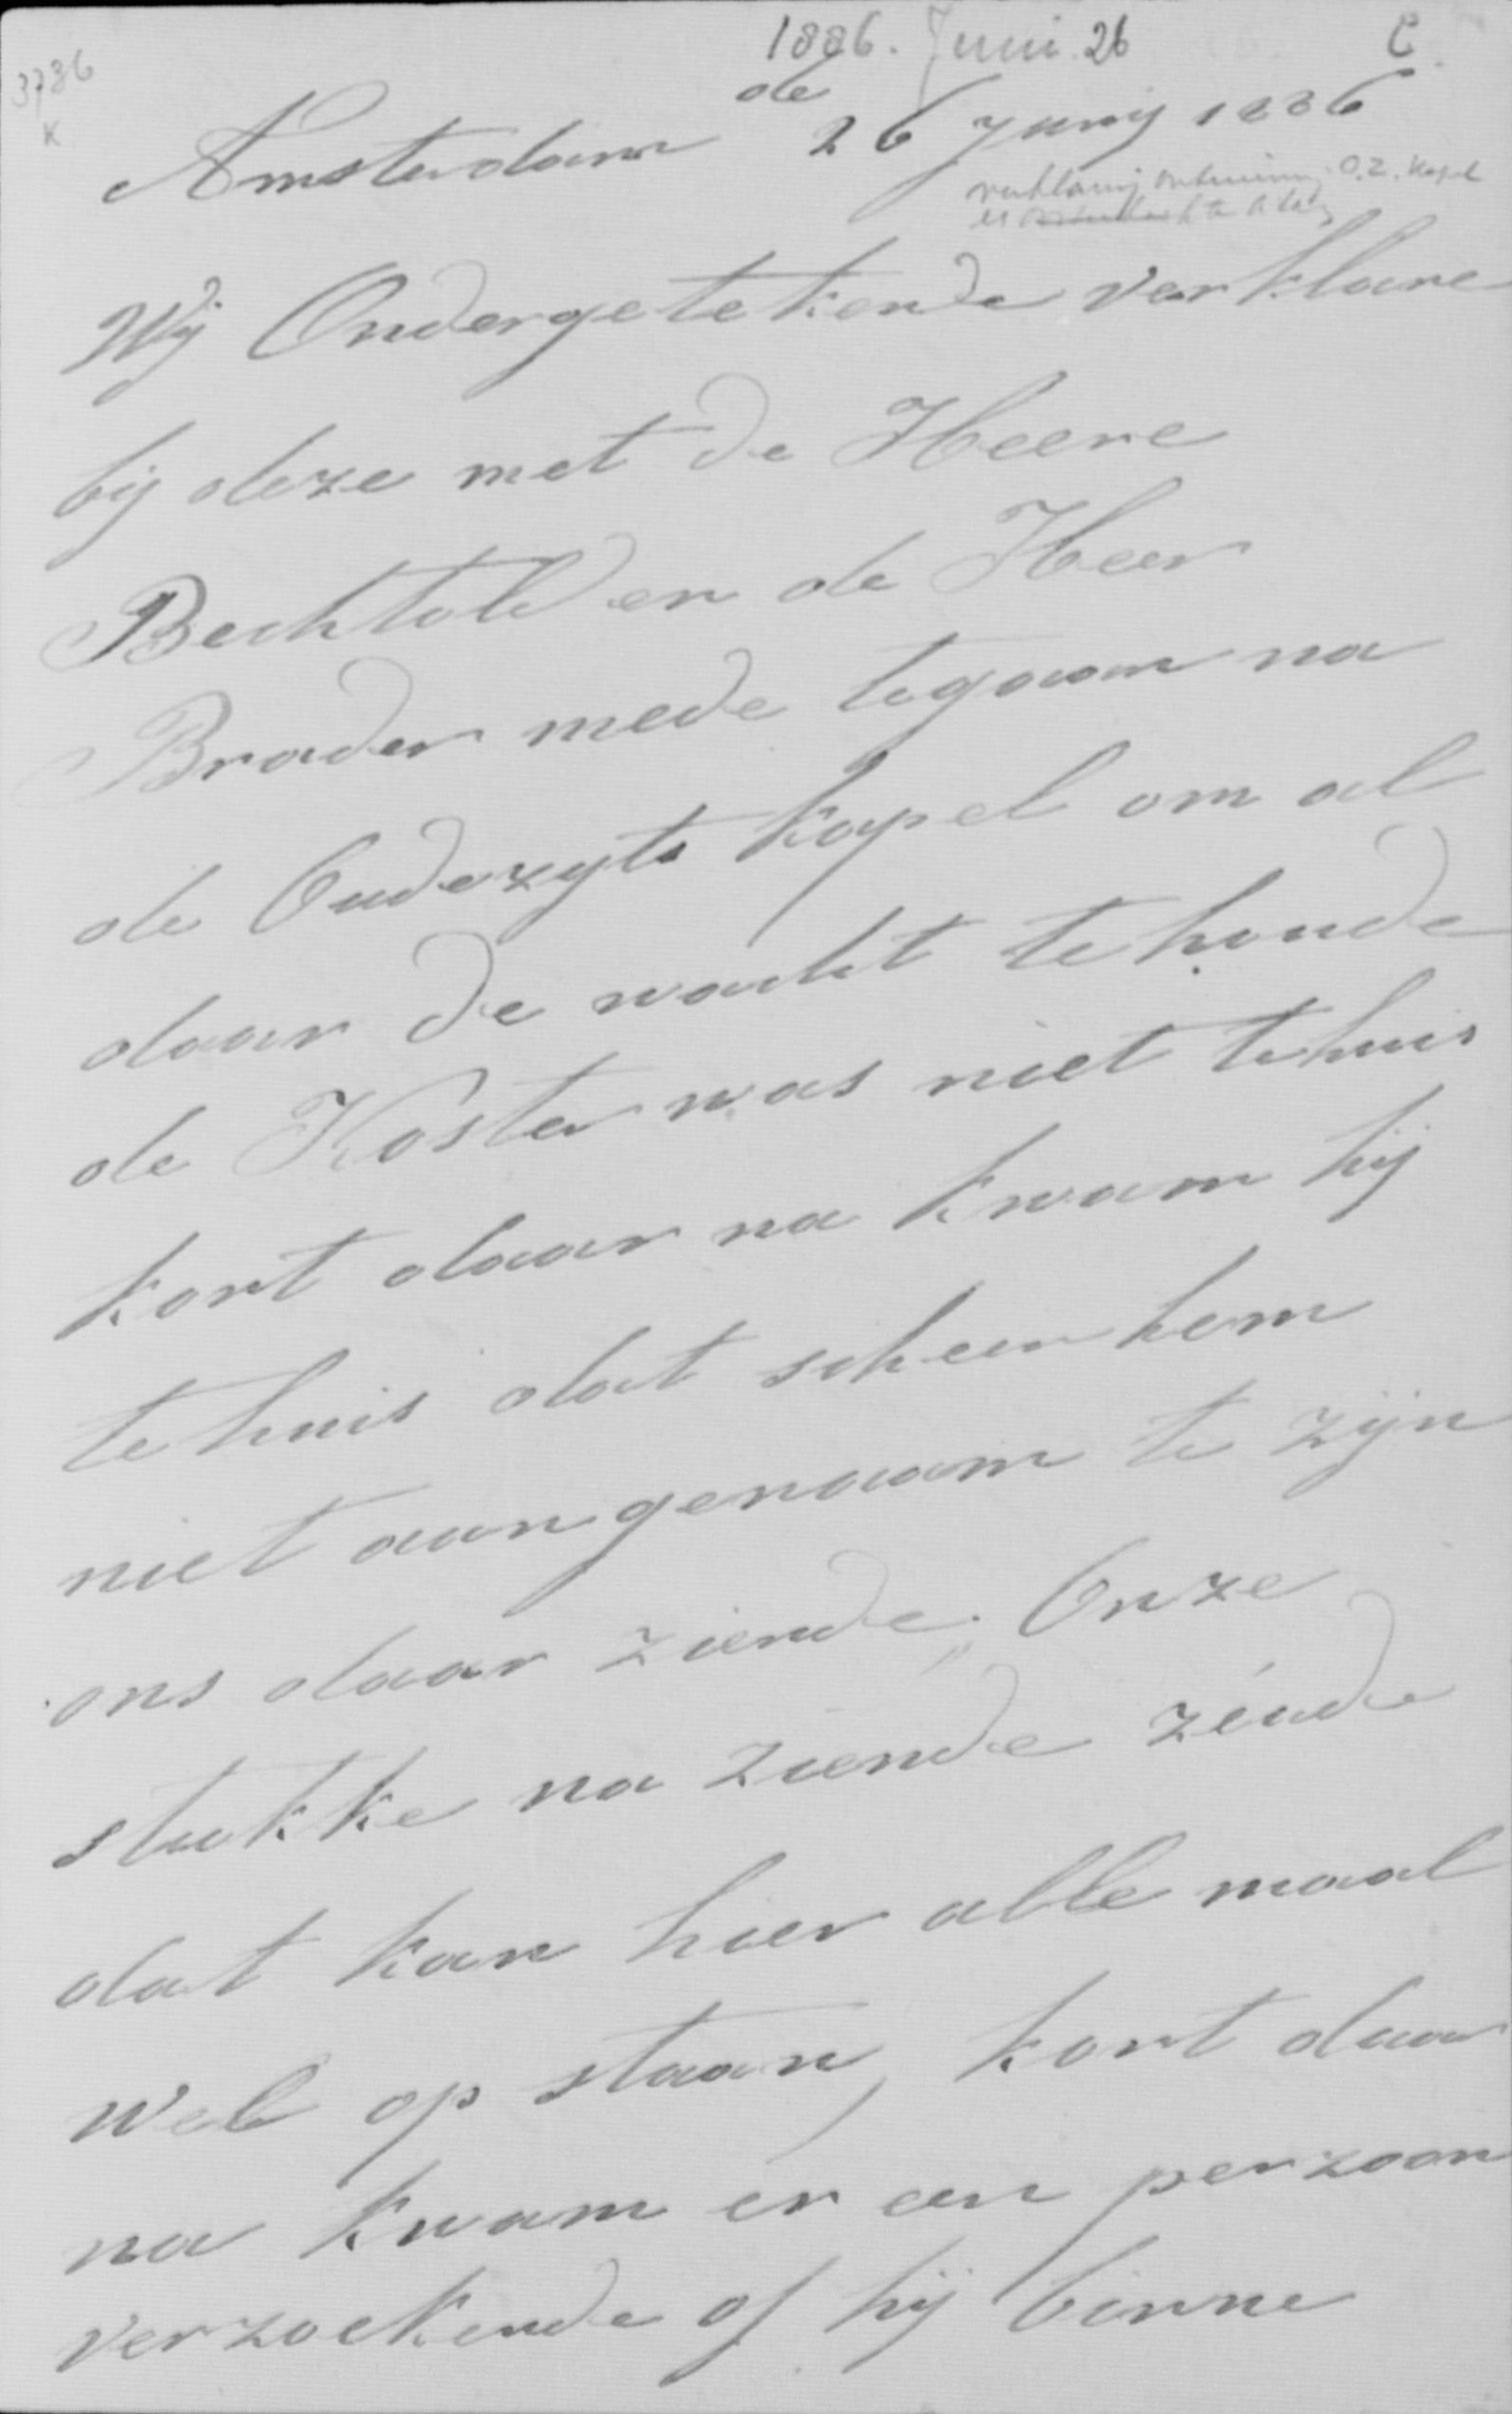 1886. Juni 26 C.
3786
K
Amsterdam de 26 Junij 1886
O.Z. Kapel
Wij Ondergetekende verklare
bij deze met de Heere
Bechtold en de Heer
Brader mede tegaan na
de Oudezyts kapel om al
daar de wacht te houde
de Koster was niet tehuis
kort daar na kwam hij
tehuis dat scheen hem
niet aangenaam te zijn
ons daar ziende. Onze
stukke na ziende zéude
dat kan hier alle maal
wel op staan, kort daar
na kwam er een perzoon
verzoekende of hij binne